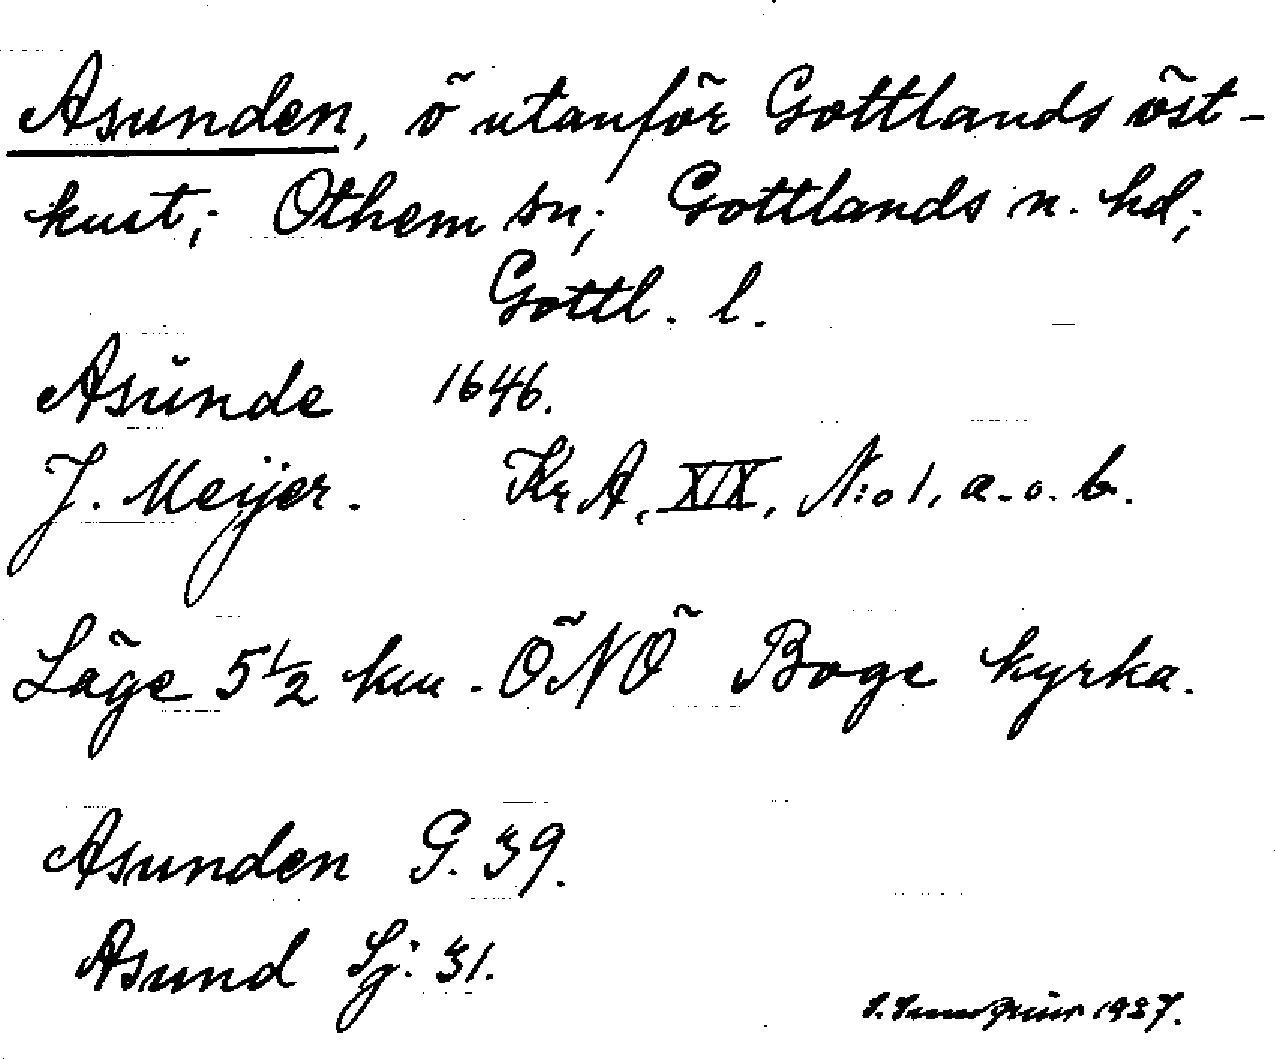 Asunden, ö utanför Gottlands öst-
kust; Othem sn; Gottlands n. hd;
Gottl. l.
Asŭnde 1646.
J. Meijer. Kr A, XIX, N:o 1, a. o. b.
Läge 5 1/2 km. ÖNÖ Boge kyrka.
Asunden G. 39.
Asund Sj: 31.
1937.